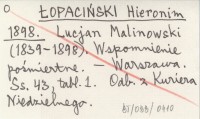 ŁOPACIŃSKI Hieronim
1898. Lucjan Malinowski
(1839-1898). Wspomnienie
pośmiertne. — Warszawa.
Ss. 43, tabl. 1. Odb. z Kuriera
Niedzielnego.